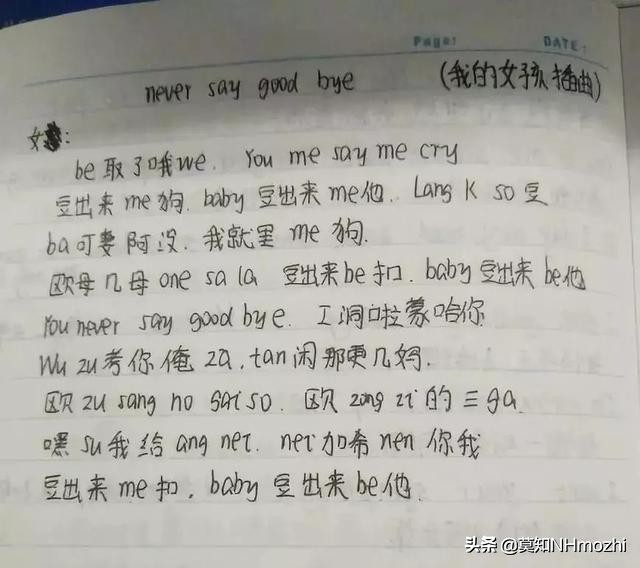 Page: DATE:
never say good bye (我的女孩插曲)
女:
be取了哦we. You me say me cry
豆出来me狗. baby 豆出来me他. Lang K so 豆
ba可妻阿没. 我就里me狗.
欧母几母one sa la 豆出来be扣. baby 豆出来be他
You never say good bye. 工洞啦蒙哈你
Wu zu考你俺za, tan闲那更几妈.
欧zu sang no gai so. 欧zong zi的三ga.
嘿su我给ang net. net加希nen你我
豆出来me扣, baby 豆出来be他.
头条 @莫知NHmozhi